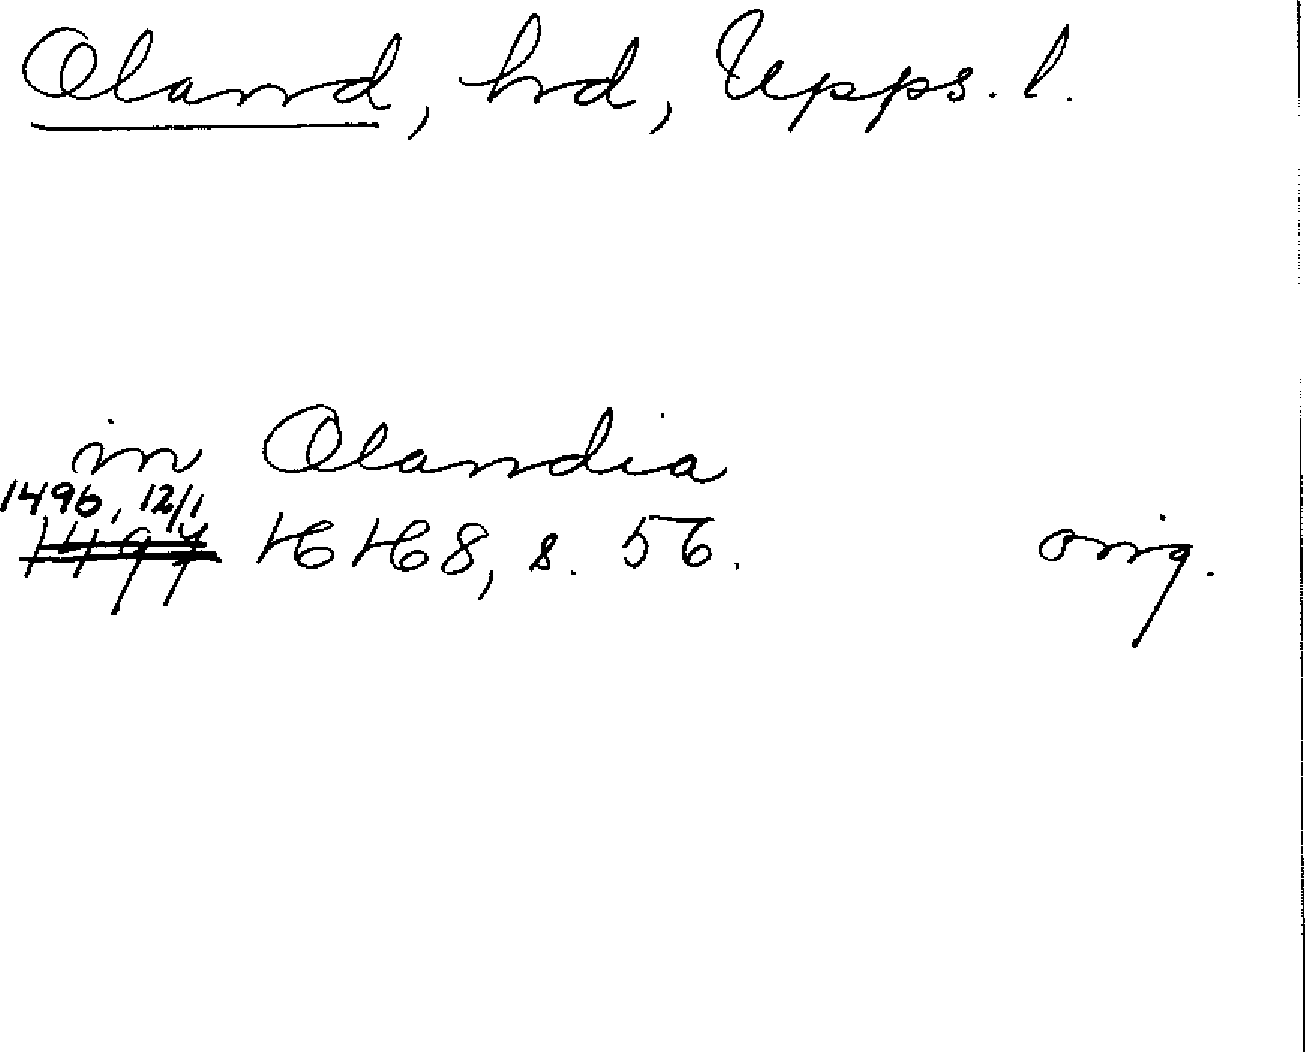 Oland, hd, Upps. l.
in Olandia
1496, 12/1
1497 HH 8, s. 56. orig.